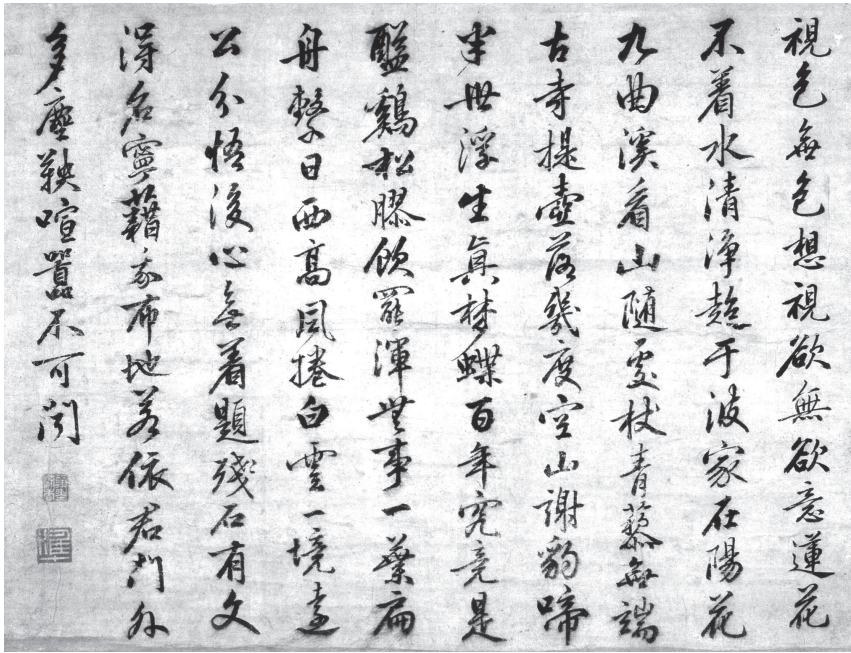 視色無色想視欲無欲意蓮花
不着水清淨超于彼家在陽花
九曲溪看山随處杖青藜無端
古寺提壺落幾度空山謝豹啼
半世浮生眞梦蝶百年究竟是
醯鷄松膠飲罷渾無事一葉扁
舟繫日西高風捲白雲一境遠
公分悟後心無着題殘石有文
得名寧藉我布地若依君門外
多塵鞅喧囂不可聞